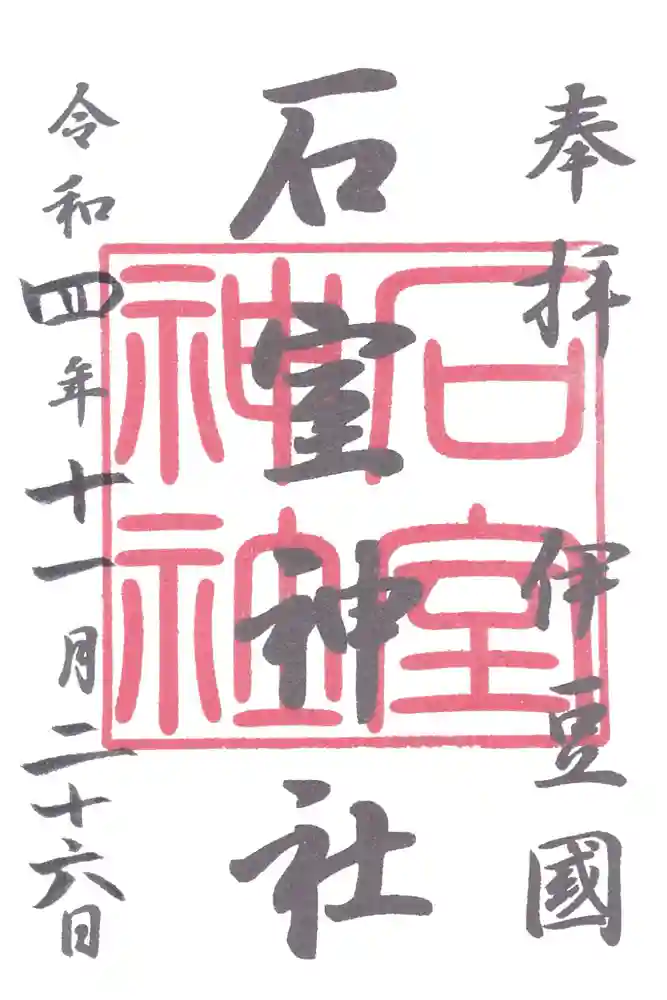 奉拝 伊豆國
石室神社
石室
神社
令和四年十一月二十六日